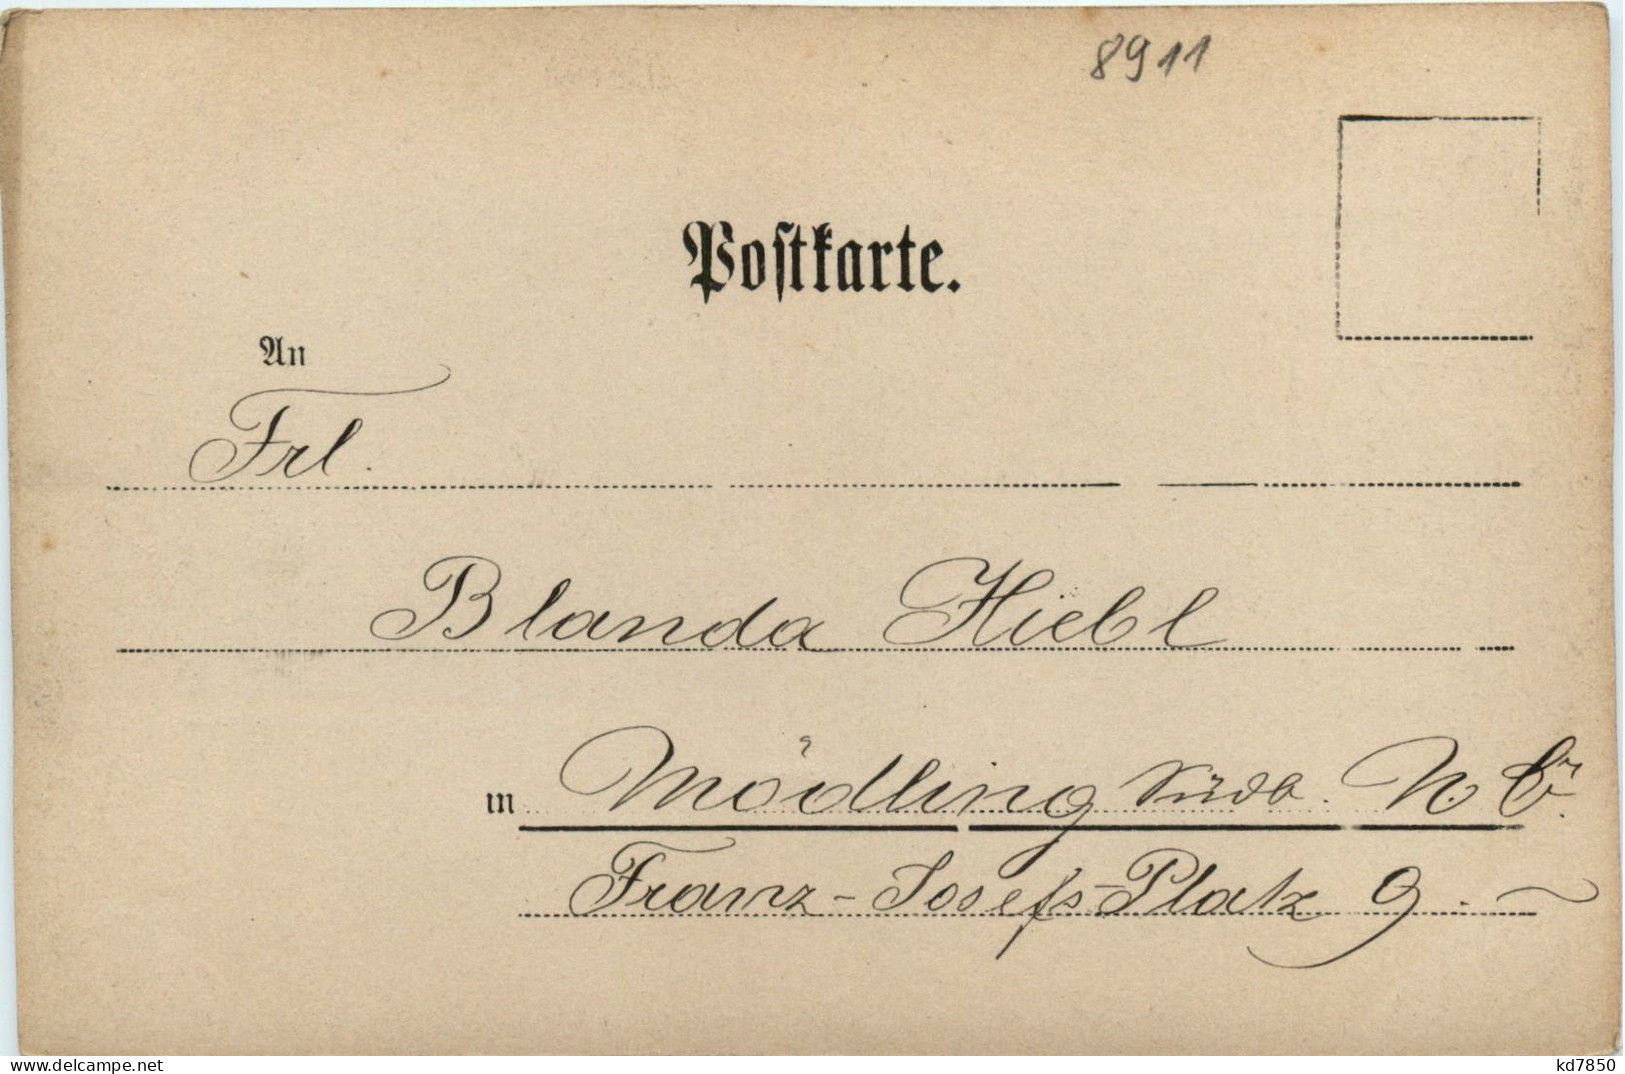 8911
Postkarte.
An
Frl.
Blanda Hiebl
in Mödling Südb. N. Ö.
Franz-Josefs-Platz 9.
delcampe.net
kd7850